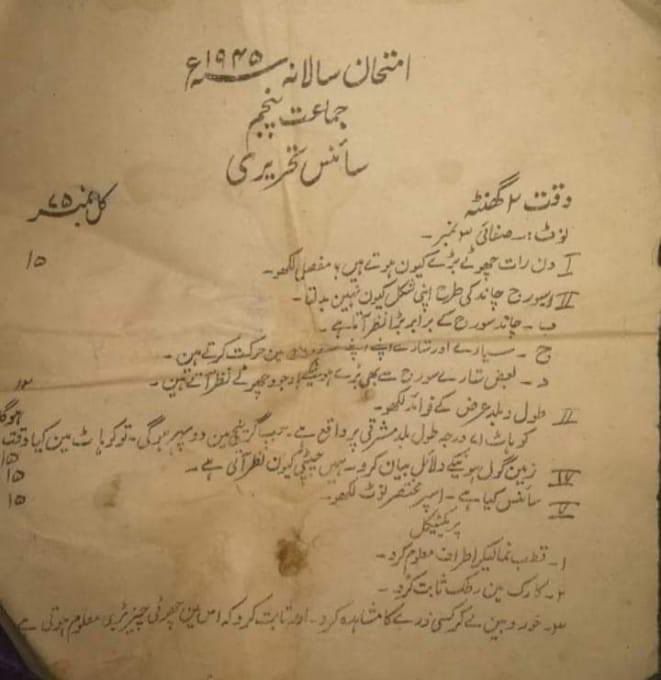 امتحان سالانہ سنہ ۱۹۴۵ء
جماعت پنجم
سائنس تحریری
وقت ۲ گھنٹہ
کل نمبر ۷۵
نوٹ:۔ صفائی ۳ نمبر۔
I دن رات چھوٹے بڑے کیون ہوتے ہیں، مفصل لکھو۔ ۱۵
II ا۔ سورج چاند کی طرح اپنی شکل کیون نہین بدلتا۔
ب۔ چاند سورج کے برابر بڑا نظر آتا ہے۔
ج۔ سیارے اور ستارے اپنے اپنے مین حرکت کرتے ہین۔
د۔ بعض ستارے سورج سے بھی بڑے ہونیکے باوجود چھوٹے نظر آتے ہین۔ ۱۲
II طول و بلد عرض کے فوائد لکھو۔
کوہاٹ ۷۱ درجہ طول بلد مشرقی پر واقع ہے۔ جب گرینچ مین دوپہر ہوگی۔ تو کوہاٹ مین کیا وقت ہوگا ۱۵
IV زمین گول ہونیکے دلائل بیان کرو۔ ہمیں چپٹی کیون نظر آتی ہے۔ ۱۵
V سائنس کیا ہے۔ اسپر مختصر نوٹ لکھو۔ ۱۵
پریکٹیکل
۱۔ قطب نما لیکر اطراف معلوم کرو۔
۲۔ کارک مین ثابت کرو۔
۳۔ خوردبین لے کر کسی ذرے کا مشاہدہ کرو۔ اور ثابت کرو کہ اس مین چھوٹی چیز بڑی معلوم ہوتی ہے